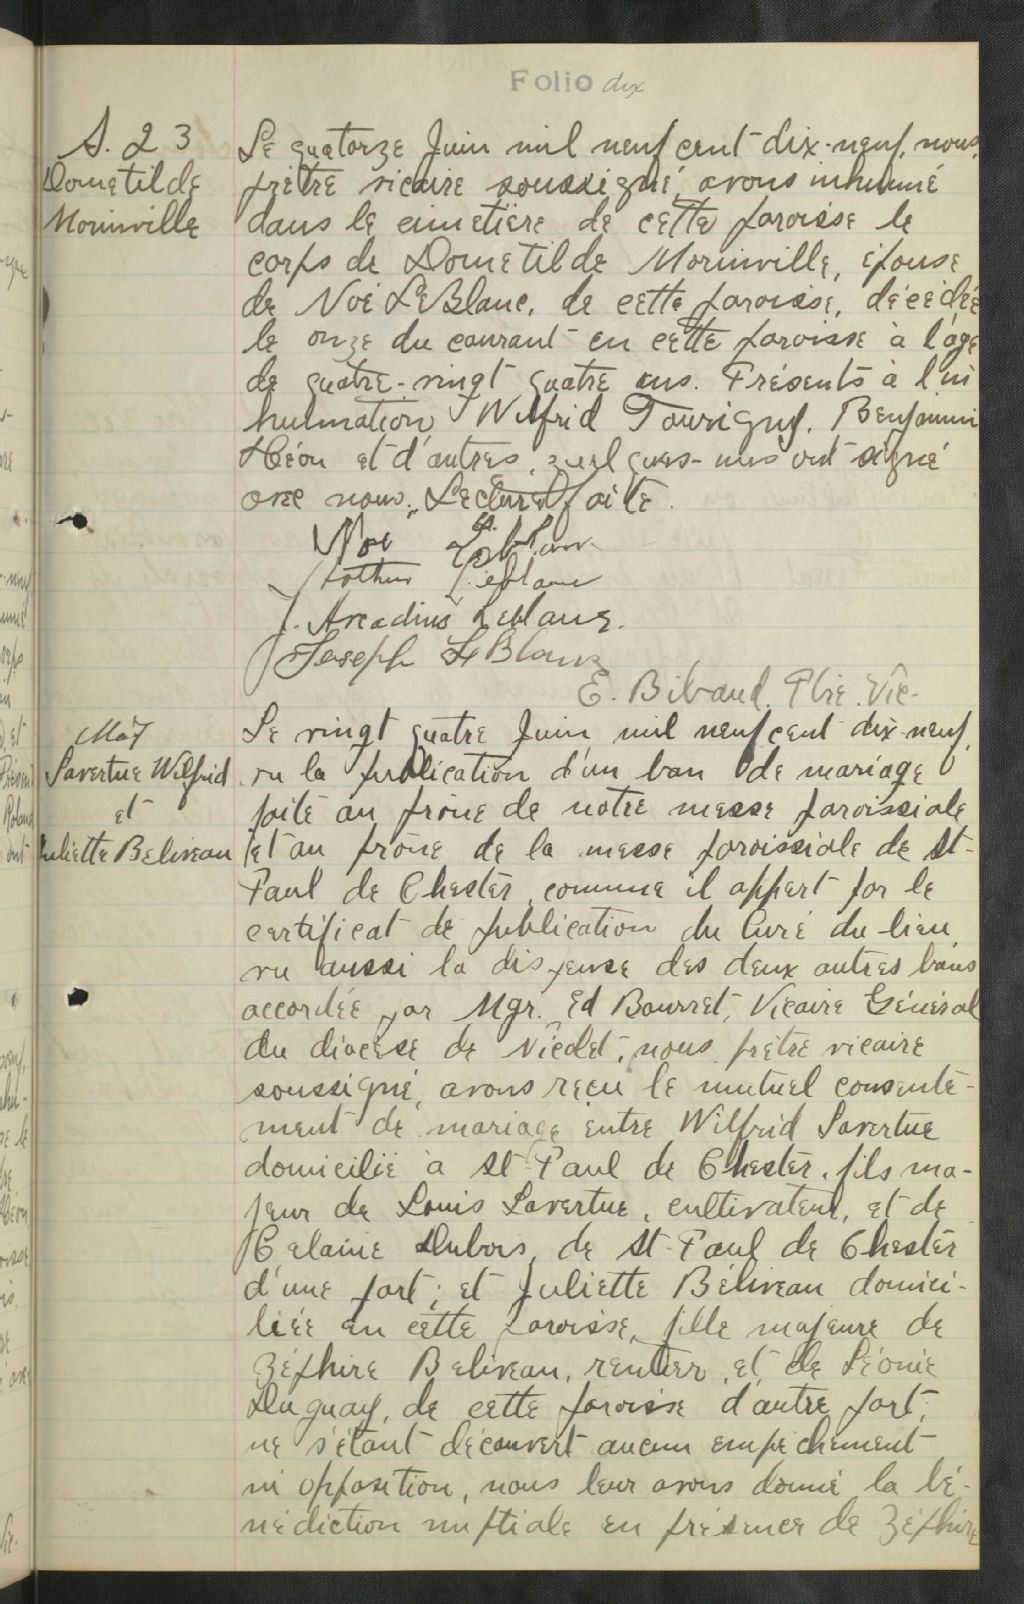 Folio dix
S. 23
Dometilde
Morinville
Le quatorze Juin mil neuf cent dix-neuf, nous,
prêtre vicaire soussigné, avons inhumé
dans le cimetière de cette paroisse le
corps de Dometilde Morinville, épouse
de Noé LeBlanc, de cette paroisse, décédée
le onze du courant en cette paroisse à l'âge
de quatre-vingt quatre ans. Présents à l'in
humation Wilfrid Tourigny, Benjamin
Héon et d'autres, quelques-uns ont signé
avec nous. Lecture faite.
Noe Leblanc
Arthur Leblanc
J. Arcadius Leblanc.
Joseph LeBlanc
E. Bibaud. Ptre. Vic.
M 27
Lavertue Wilfrid
et
Juliette Beliveau
Le vingt quatre Juin mil neuf cent dix-neuf,
vu la publication d'un ban de mariage
faite au prône de notre messe paroissiale
et au prône de la messe paroissiale de St-
Paul de Chester, comme il appert par le
certificat de publication du Curé du lieu,
vu aussi la dispense des deux autres bans
accordée par Mgr. Ed Bourret, Vicaire Général
du diocèse de Nicolet, nous prêtre vicaire
soussigné, avons reçu le mutuel consente-
ment de mariage entre Wilfrid Lavertue
domicilié à St-Paul de Chester, fils ma-
jeur de Louis Lavertue, cultivateur, et de
Celanie Dubois, de St-Paul de Chester
d'une part; et Juliette Béliveau domici-
liée en cette paroisse, fille majeure de
Zéphire Beliveau, rentier, et de Léonie
Duguay, de cette paroisse d'autre part;
ne s'étant découvert aucun empêchement
ni opposition, nous leur avons donné la bé-
nédiction nuptiale en présence de Zéphire